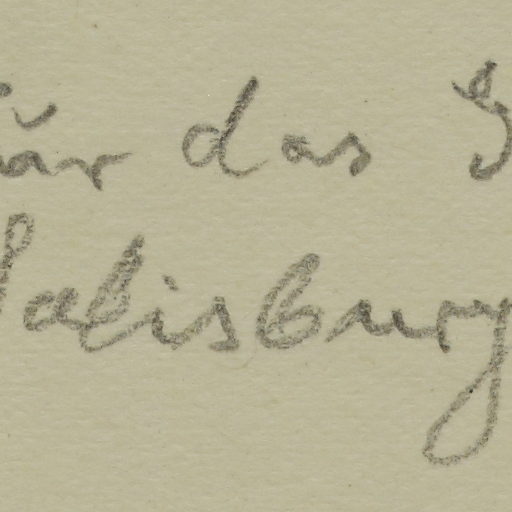 für das
Salisbury